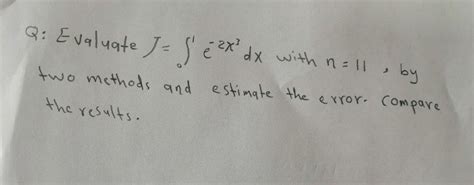 Q: Evaluate J = ∫₀¹ e^{-2x²} dx with n = 11 , by
two methods and estimate the error. Compare
the results.